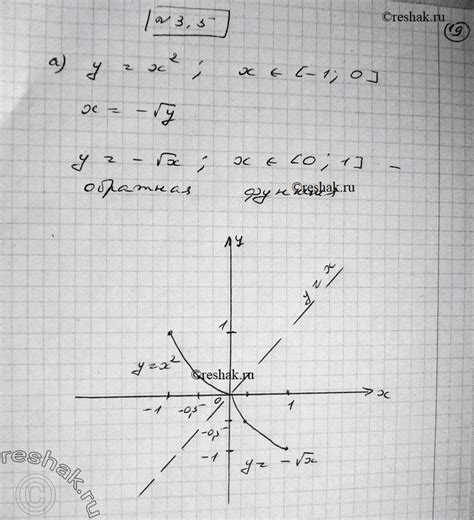 ©reshak.ru
19
№ 3,5
а) y = x² ; x ∈ [-1; 0]
x = -√y
y = -√x ; x ∈ [0; 1] -
обратная функция
©reshak.ru
y
y = x
1
y = x²
©reshak.ru
-1 -0,5 0 1 x
-0,5
-1
y = -√x
reshak.ru